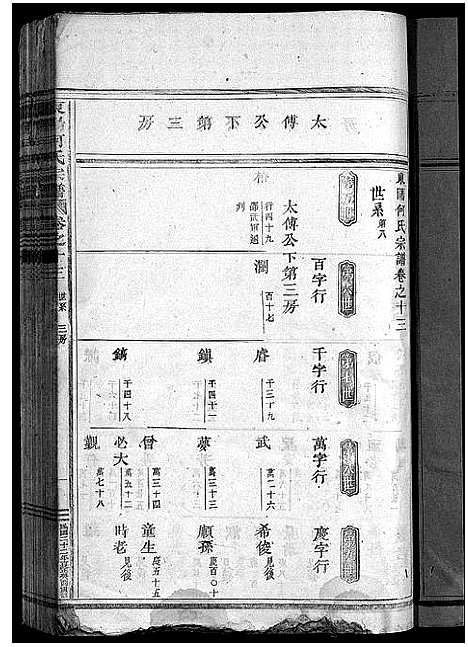 太傅公下第三房
東陽何氏宗譜卷之十三
世系 第八
太傅公下第三房
行四十九
邵武軍通判
百字行
瀾
百十七
千字行
睿
千三十九
鎮
千四十一
鏑
千四十八
萬字行
武
萬二十六
夢
萬三十三
僧
萬三十四
必大
萬五十二
觀
萬七十八
慶字行
希俊
見後
顺孫
慶百〇十
童生
慶五十五
時老
見後
東陽何氏宗譜
卷之十三
世系
三房